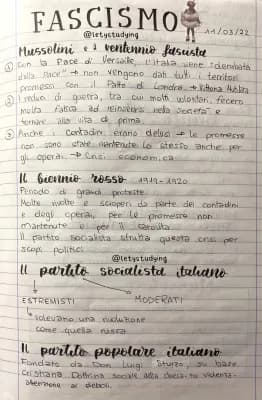 FASCISMO
@letystudying
11/03/22
Mussolini e il ventennio fascista
① Con la Pace di Versailles, l'Italia viene "derubata
dalla Pace" → non vengono dati tutti i territori
promessi con il Patto di Londra → Vittoria Mutilata
② I reduci di guerra, tra cui molti volontari, fecero
molta fatica ad reinserirsi nella società e
tornare alla vita di prima.
③ Anche i contadini erano delusi → le promesse
non sono state mantenute lo stesso anche per
gli operai → Crisi economica
Il biennio rosso 1919-1920
Periodo di grandi proteste
Molte rivolte e scioperi da parte dei contadini
e degli operai, per le promesse non
mantenute e per il carovita
Il partito socialista sfrutta questa crisi per
scopi politici
@letystudying
Il partito socialista italiano
ESTREMISTI MODERATI
volevano una rivoluzione
come quella russa
Il partito popolare italiano
Fondato da Don Luigi Sturzo, su base
Cristiana. Dottrina sociale alla
attenzione ai deboli.